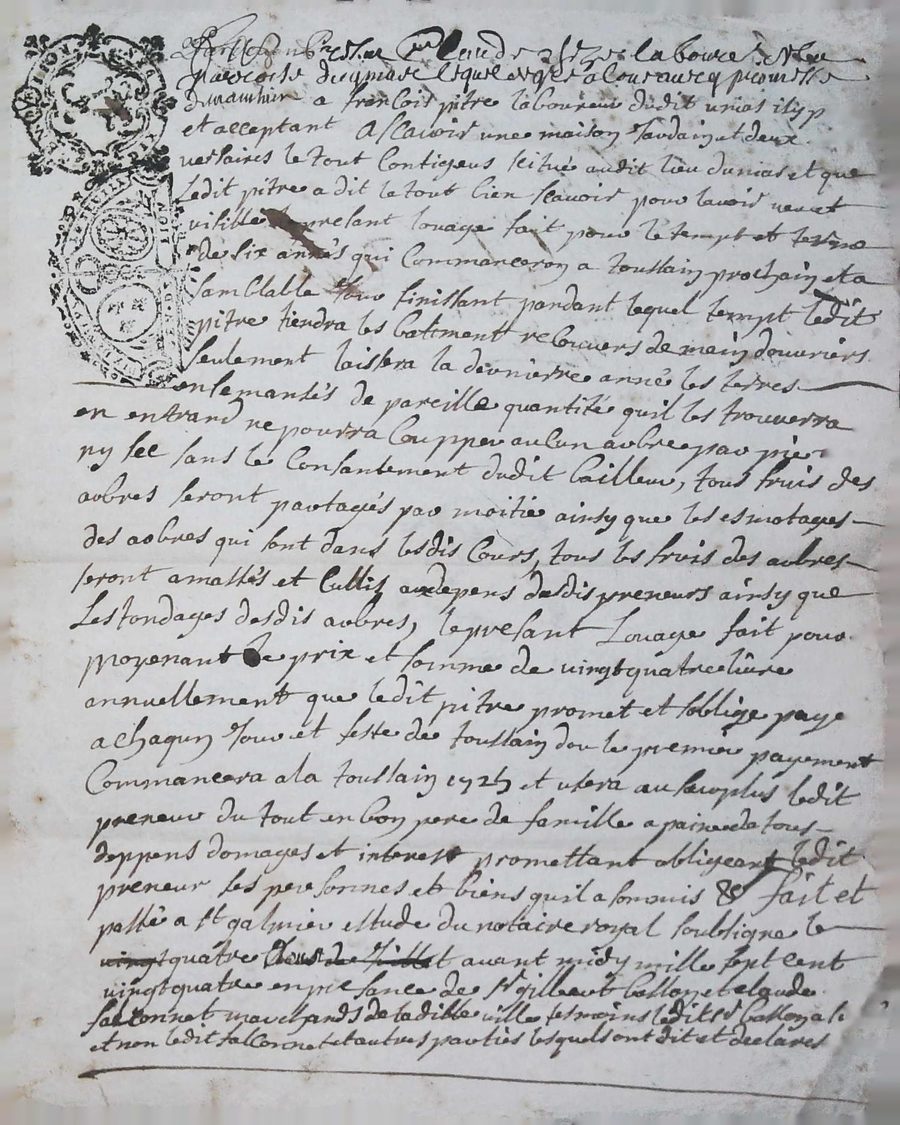 Claude laboureur
françoise lequel de gré a loué avecq promesse
de maintenir a françois pitre laboureur dudit unias icy p
et acceptant Ascavoir une maison Jardain et deux
versaires le tout Contigeus scitué audit lieu dunias et que
ledit pitre a dit le tout bien scavoir pour lavoir veu et
visitté le presant louage fait pour le tempt et terme
de six annés qui Commanceron a toussain prochain et a
samblable Jour finissant pandant lequel tempt ledit
pitre tiendra les batiment recouvers de main douvriers
seulement laissera la dernierre anné les terres
ensemansés de pareille quantité quil les trouverra
en entrand ne pourra Coupper aulcun arbre par pier
ny sec sans le Consantement dudit bailleur, tous fruis des
arbres seront partagés par moitié ainsy que les esmotages
des arbres qui sont dans lesdis Cours, tous les fruis des arbres
seront amassés et Cullis audepens desdis preneurs ainsy que
Les tondages desdis arbres, le presant Louage fait pour
moyenant le prix et somme de vingtquatre livre
annuellement que ledit pitre promet et soblige paye
a chaqun Jour et feste de toussain dou le premier payement
Commancera a la toussain 1725 et usera au surplus ledit
preneur du tout en bon pere de famille a paine de tous
deppens domages et interest promettant obligeant ledit
preneur ses personnes et biens quil a soumis & fait et
passé a st galmier estude du notaire royal soubsigné le
vingtquatre avant midy mille sept cent
vingtquatre en presance de sr gilbert ballon et claude
falconnet marchands de ladite ville tesmoins ledit sr ballon
et non ledit falconnet et autres parties lesquels ont dit et declarés